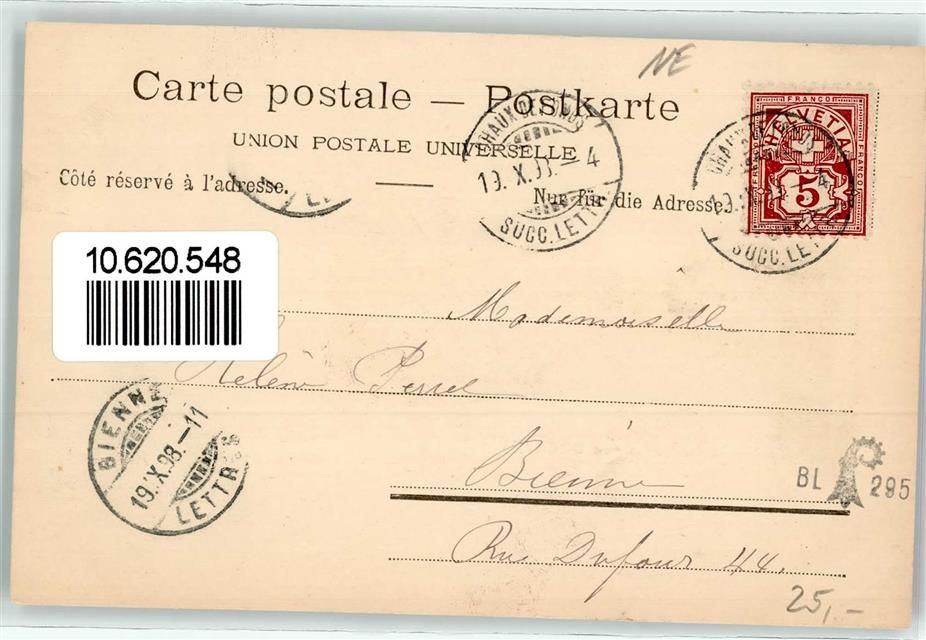 NE
Carte postale — Postkarte
UNION POSTALE UNIVERSELLE
Côté réservé à l'adresse. Nur für die Adresse.
CHAUX-DE-FONDS
19. X. 98. – 4
SUCC. LETT
FRANCO
HELVETIA
FRANCO
FRANCO
5
SUCC. LE
10.620.548
Mademoiselle
Hélène Perret
Bienne
Rue Dufour 44.
BIENNE
19. X. 98. – 11
LETTR
BL 295
25,-